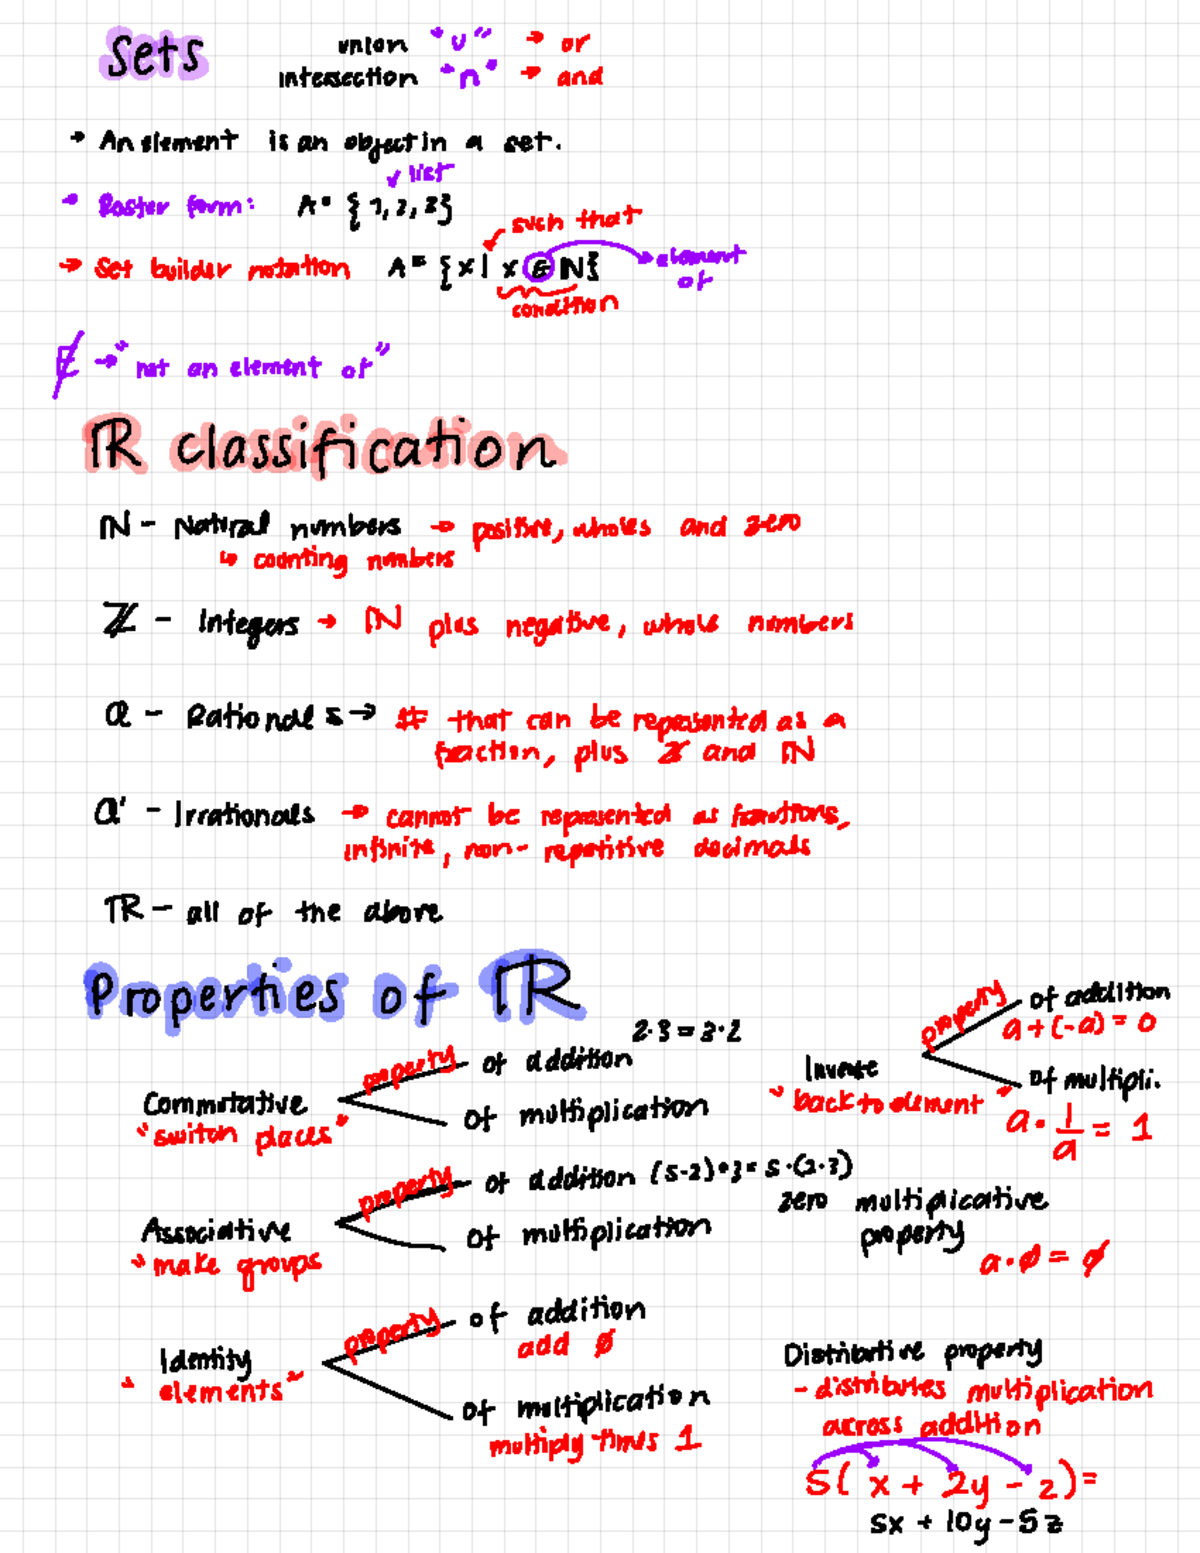 Sets
union "∪" → or
intersection "∩" → and
→ An element is an object in a set.
list
→ Roster form: A = {1, 2, 3}
such that
→ Set builder notation A = {x | x ∈ ℕ}
element of
condition
∉ → "not an element of"
ℝ classification
ℕ - Natural numbers → positive, wholes and zero
↳ counting numbers
ℤ - Integers → ℕ plus negative, whole numbers
Q - Rationals → # that can be represented as a
fraction, plus ℤ and ℕ
Q' - Irrationals → cannot be represented as fractions,
infinite, non-repetitive decimals
ℝ - all of the above
Properties of ℝ
2·3 = 3·2
Commutative
"switch places"
property of addition
of multiplication
Inverse
"back to element"
property of addition
a + (-a) = 0
of multipli.
a · 1/a = 1
Associative
" make groups
property of addition (5·2)·3 = 5·(2·3)
of multiplication
zero multiplicative
property
a · 0 = 0
Identity
" elements "
property of addition
add 0
of multiplication
multiply times 1
Distributive property
- distributes multiplication
across addition
5( x + 2y - z) =
5x + 10y - 5z